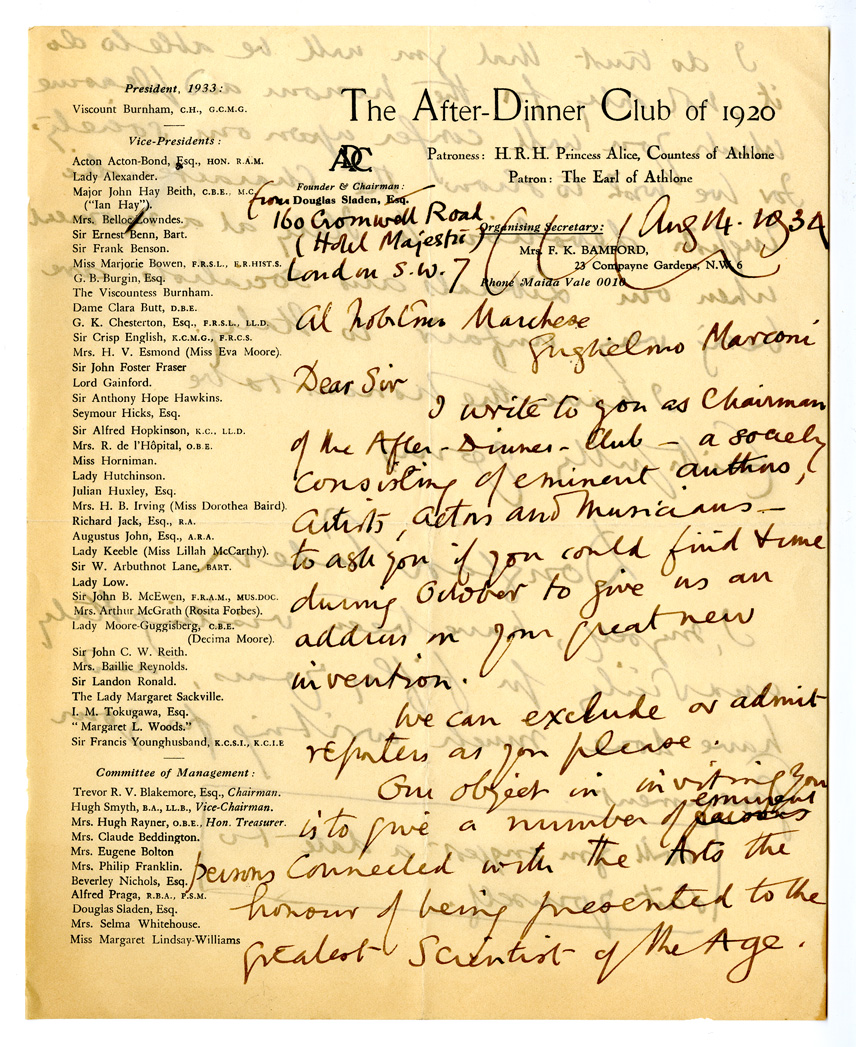 President, 1933:
Viscount Burnham, C.H., G.C.M.G.
Vice-Presidents:
Acton Acton-Bond, Esq., HON. R.A.M.
Lady Alexander.
Major John Hay Beith, C.B.E., M.C.
("Ian Hay").
Mrs. Belloc Lowndes.
Sir Ernest Benn, Bart.
Sir Frank Benson.
Miss Marjorie Bowen, F.R.S.L., F.R.HIST.S.
G. B. Burgin, Esq.
The Viscountess Burnham.
Dame Clara Butt, D.B.E.
G. K. Chesterton, Esq., F.R.S.L., LL.D.
Sir Crisp English, K.C.M.G., F.R.C.S.
Mrs. H. V. Esmond (Miss Eva Moore).
Sir John Foster Fraser
Lord Gainford.
Sir Anthony Hope Hawkins.
Seymour Hicks, Esq.
Sir Alfred Hopkinson, K.C., LL.D.
Mrs. R. de l'Hôpital, O.B.E.
Miss Horniman.
Lady Hutchinson.
Julian Huxley, Esq.
Mrs. H. B. Irving (Miss Dorothea Baird).
Richard Jack, Esq., R.A.
Augustus John, Esq., A.R.A.
Lady Keeble (Miss Lillah McCarthy).
Sir W. Arbuthnot Lane, BART.
Lady Low.
Sir John B. McEwen, F.R.A.M., MUS.DOC.
Mrs. Arthur McGrath (Rosita Forbes).
Lady Moore-Guggisberg, C.B.E.
(Decima Moore).
Sir John C. W. Reith.
Mrs. Baillie Reynolds.
Sir Landon Ronald.
The Lady Margaret Sackville.
I. M. Tokugawa, Esq.
"Margaret L. Woods."
Sir Francis Younghusband, K.C.S.I., K.C.I.E
Committee of Management:
Trevor R. V. Blakemore, Esq., Chairman.
Hugh Smyth, B.A., LL.B., Vice-Chairman.
Mrs. Hugh Rayner, O.B.E., Hon. Treasurer.
Mrs. Claude Beddington.
Mrs. Eugene Bolton
Mrs. Philip Franklin.
Beverley Nichols, Esq.
Alfred Praga, R.B.A., P.S.M.
Douglas Sladen, Esq.
Mrs. Selma Whitehouse.
Miss Margaret Lindsay-Williams
The After-Dinner Club of 1920
ADC
Patroness: H.R.H. Princess Alice, Countess of Athlone
Patron: The Earl of Athlone
Founder & Chairman:
from Douglas Sladen, Esq.
160 Cromwell Road
(Hotel Majestic)
London S.W. 7
Aug 14. 1934
Organising Secretary:
Mrs. F. K. BAMFORD,
23 Compayne Gardens, N.W. 6
Phone Maida Vale 0010
Al Nobilmo Marchese
Guglielmo Marconi
Dear Sir
I write to you as Chairman
of the After-Dinner-Club – a society
consisting of eminent authors,
artists, actors and musicians –
to ask you if you could find time
during October to give us an
address on your great new
invention.
We can exclude or admit
reporters as you please.
Our object in inviting you
is to give a number of eminent
persons connected with the Arts the
honour of being presented to the
greatest Scientist of the Age.